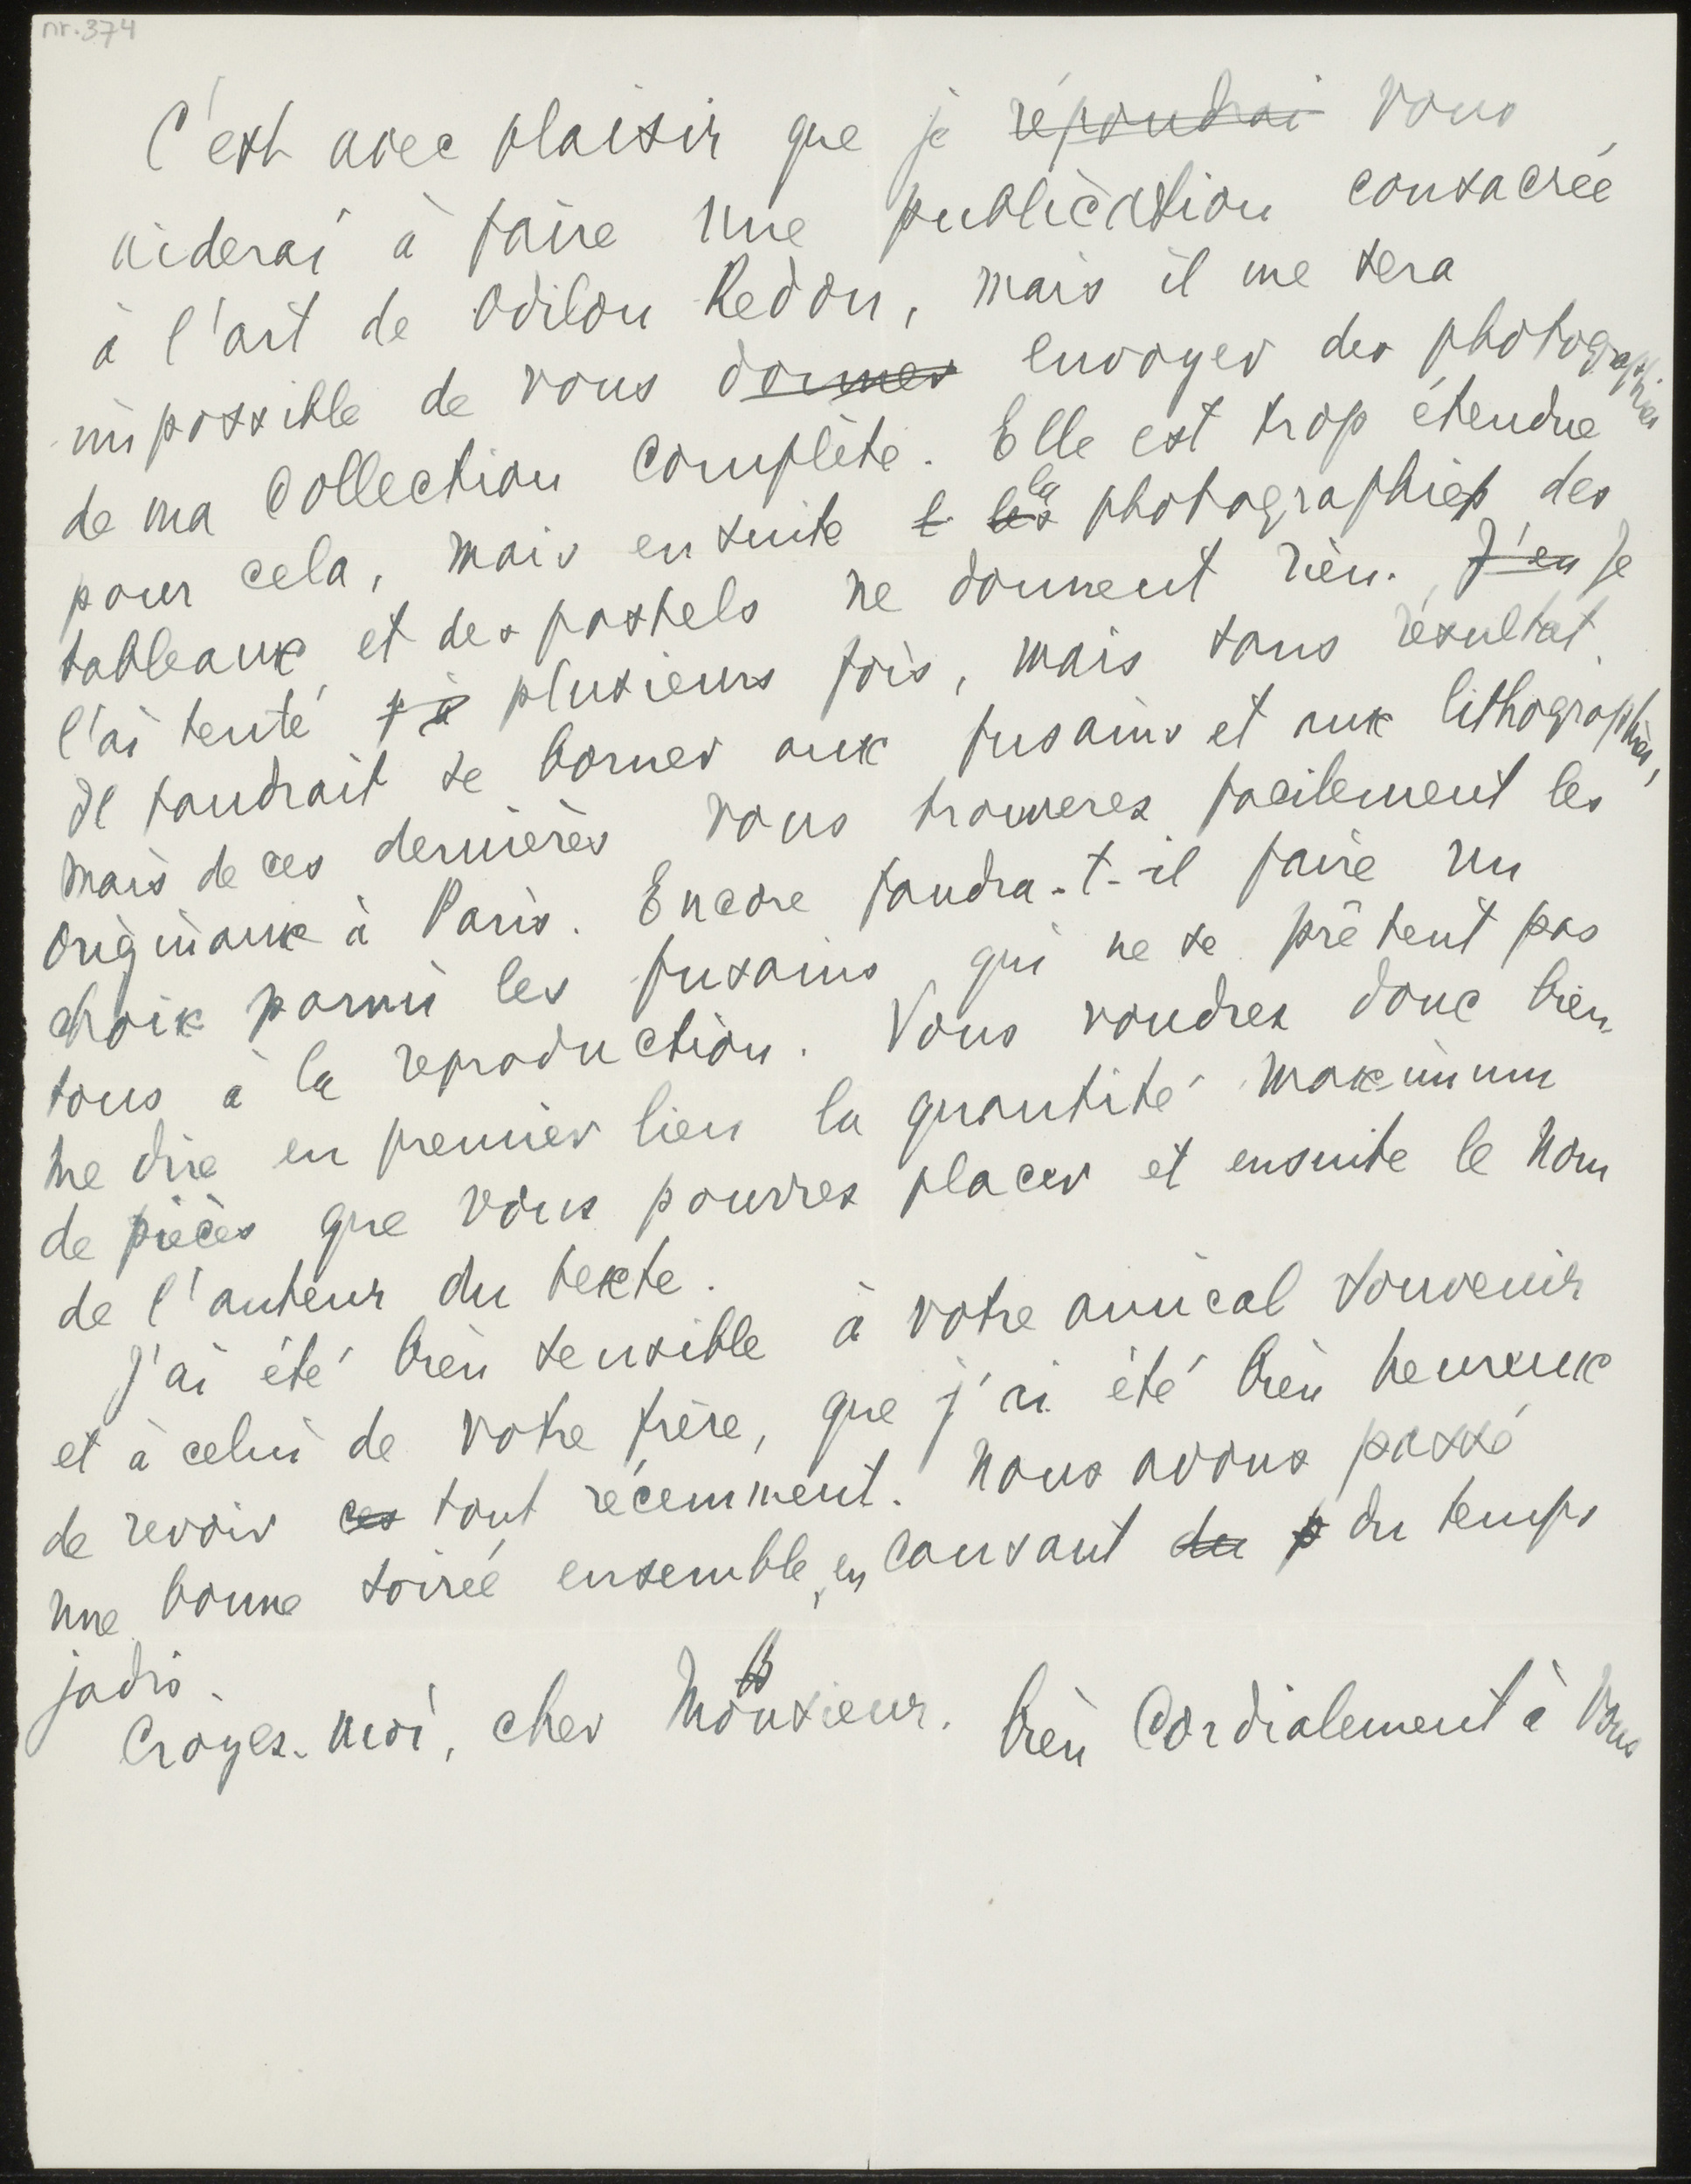 nr. 374
C'est avec plaisir que je répondrai vous
aiderai à faire une publication consacrée
à l'art de Odilon Redon, mais il me sera
impossible de vous donner envoyer des photographies
de ma collection complète. Elle est trop étendue
pour cela, mais ensuite l les la photographies des
tableaux et des pastels ne donnent rien. J'en Je
l'ai tenté plusieurs fois, mais sans résultat.
Il faudrait se borner aux fusains et aux lithographies,
mais de ces dernières vous trouverez facilement les
originaux à Paris. Encore faudra-t-il faire un
choix parmi les fusains qui ne se prêtent pas
tous à la reproduction. Vous voudrez donc bien
me dire en premier lieu la quantité maximum
de pièces que vous pourrez placer et ensuite le nom
de l'auteur du texte.
J'ai été bien sensible à votre amical souvenir
et à celui de votre frère, que j'ai été bien heureux
de revoir ces tout récemment. Nous avons passé
une bonne soireé ensemble, en causant du p du temps
jadis.
Croyez-moi, cher Monsieur. B bien Cordialement à Vous